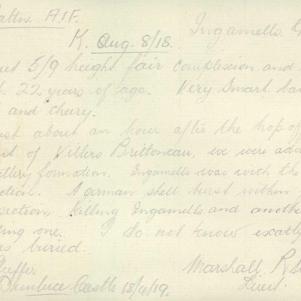 Battn. A.I.F. Ingamells
K. Aug. 8/18.
5/9 height fair complexion and
22 years of age. Very smart
and cheery.
about an hour after the hop of
of Villers Brittoneau, we were
formation. Ingamells was with the
A German shell burst within
section, killing Ingamells and another
one. I do not know exactly
buried.
Marshall R.
Dunluce Castle 15/4/19. Lieut.